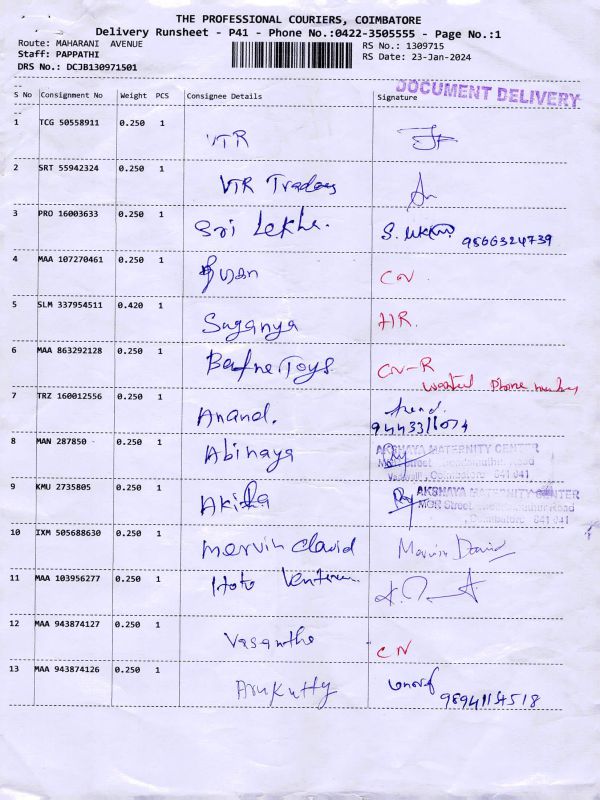 THE PROFESSIONAL COURIERS, COIMBATORE
Delivery Runsheet - P41 - Phone No.:0422-3505555 - Page No.:1
Route: MAHARANI AVENUE
RS No.: 1309715
Staff: PAPPATHI
RS Date: 23-Jan-2024
DRS No.: DCJB130971501
DOCUMENT DELIVERY
S No Consignment No Weight PCS Consignee Details Signature
1 TCG 50558911 0.250 1 VTR
2 SRT 55942324 0.250 1 VTR Traders
3 PRO 16003633 0.250 1 Sri Lekha. 9566324739
4 MAA 107270461 0.250 1 CN
5 SLM 337954511 0.420 1 Suganya
6 MAA 863292128 0.250 1 Bafne Toys CN-R
wanted phone number
7 TRZ 160012556 0.250 1 Anand.
8 MAN 287850 0.250 1 Abinaya
AKSHAYA MATERNITY CENTER
Coimbatore 641 041
9 KMU 2735805 0.250 1 AKSHAYA MATERNITY CENTER
MOR Street, Road
Coimbatore 641 041
10 IXM 505688630 0.250 1 mervin david Mervin David
11 MAA 103956277 0.250 1
12 MAA 943874127 0.250 1 Vasantha CN
13 MAA 943874126 0.250 1 Arukutty